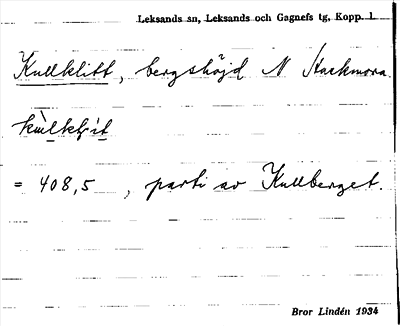 Leksands sn, Leksands och Gagnefs tg, Kopp. l.
Kullklitt, bergshöjd N Hackmora.
= 408,5, parti av Kullberget.
Bror Lindén 1934